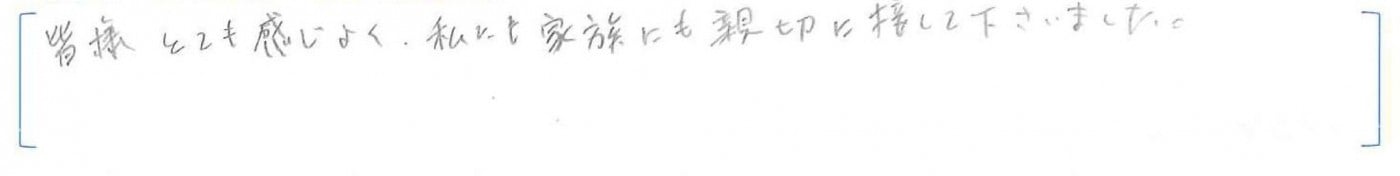 皆様 とても感じよく、私にも家族にも親切に接して下さいました。